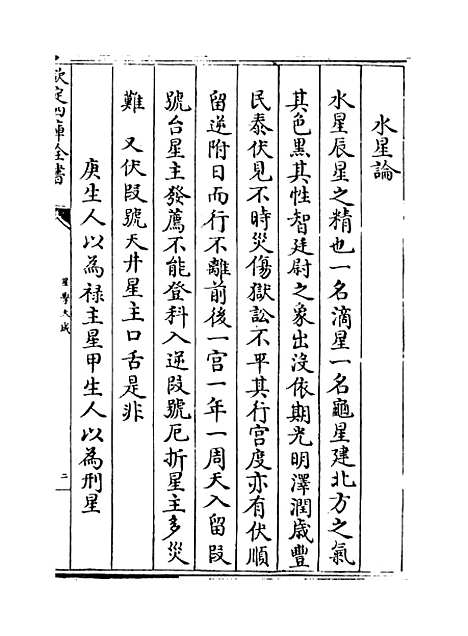 水星論
水星辰星之精也一名滴星一名龜星建北方之氣
其色黑其性智廷尉之象出沒依期光明澤潤歲豐
民泰伏見不時災傷獄訟不平其行宫度亦有伏順
留逆附日而行不離前後一宫一年一周天入留段
號台星主發薦不能登科入逆段號厄折星主多災
難 又伏段號天井星主口舌是非
庚生人以為禄主星甲生人以為刑星
欽定四庫全書
星學大成
二